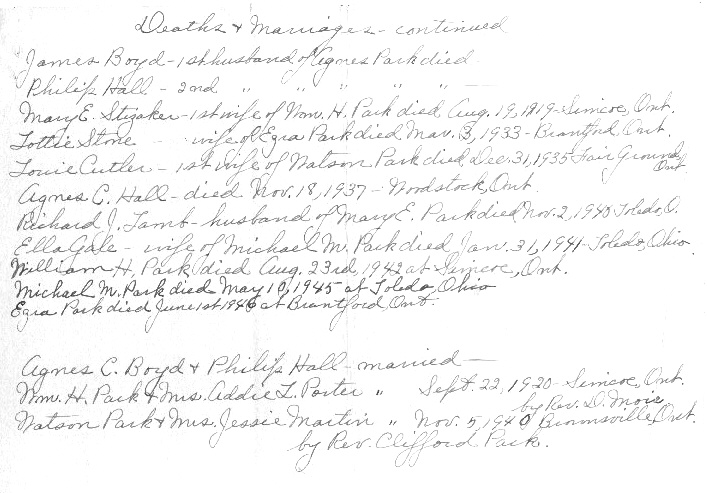 Deaths & Marriages - continued
James Boyd - 1st husband of Agnes Park died -
Philip Hall - 2nd " " " " " —
Mary E. Stizaker - 1st wife of Wm. H. Park died Aug. 19, 1919 - Simcoe, Ont.
Lottie Stone - wife of Ezra Park died Mar. 3, 1933 - Brantford, Ont.
Louie Cutler - 1st wife of Watson Park died Dec. 31, 1935 Fair Ground Ont
Agnes C. Hall - died Nov. 18, 1937 - Woodstock, Ont.
Richard J. Lamb - husband of Mary E. Park died Nov. 2, 1940 Toledo, O.
Ella Gale - wife of Michael M. Park died Jan. 31, 1941 - Toledo, Ohio
William H. Park died Aug. 23rd, 1942 at Simcoe, Ont.
Michael M. Park died May 10, 1945 at Toledo, Ohio
Ezra Park died June 1st 1946 at Brantford, Ont.
Agnes C. Boyd & Philip Hall - married —
Wm. H. Park & Mrs. Addie L. Porter " Sept. 22, 1920 - Simcoe, Ont.
by Rev. D. Moir
Watson Park & Mrs. Jessie Martin " Nov. 5, 1940 Ont.
by Rev. Clifford Park.